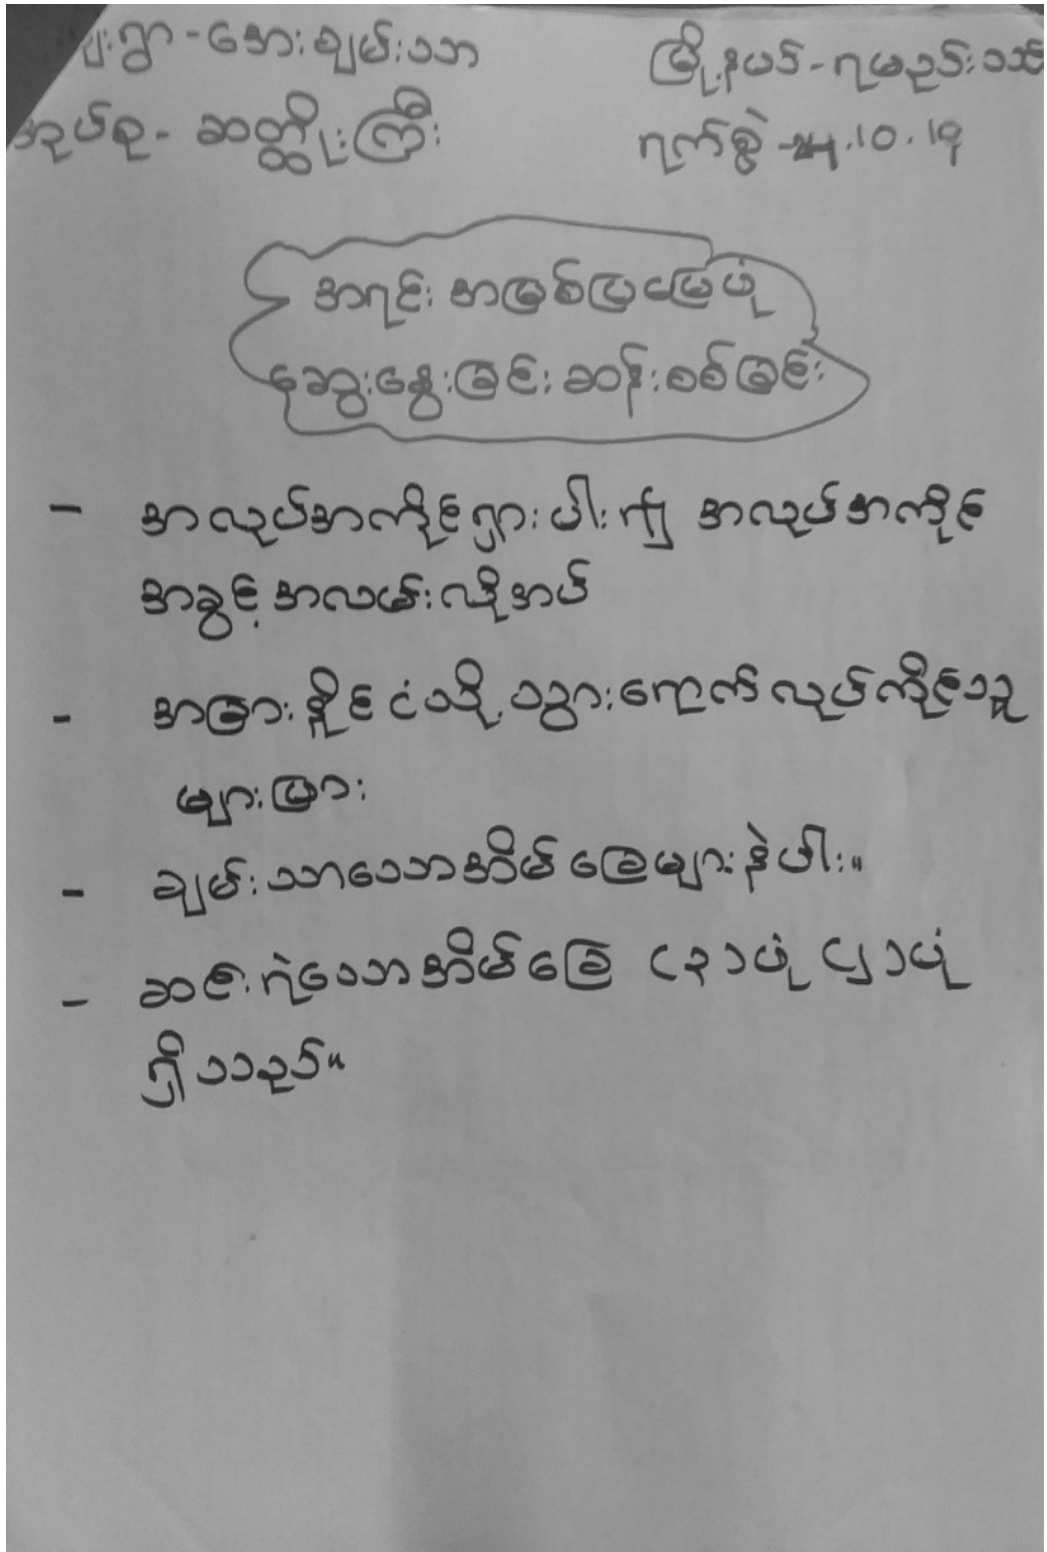 ရွာ - အေးချမ်းသာ
မြို့နယ် - ရမည်းသင်း
အုပ်စု - ဆတ္ထိုးကြီး
ရက်စွဲ - .10.19
အရင်း အမြစ်ပြမြေပုံ
ဆွေးနွေးခြင်း ဆန်းစစ်ခြင်း
- အလုပ်အကိုင်ရှားပါး၍ အလုပ်အကိုင်
အခွင့်အလမ်းလိုအပ်
- အခြားနိုင်ငံသို့ သွားရောက်လုပ်ကိုင်သူ
များပြား
- ချမ်းသာသောအိမ်ခြေများနဲပါး။
- ဆင်းရဲသောအိမ်ခြေ (၃)ပုံ (၂)ပုံ
ရှိသည်။